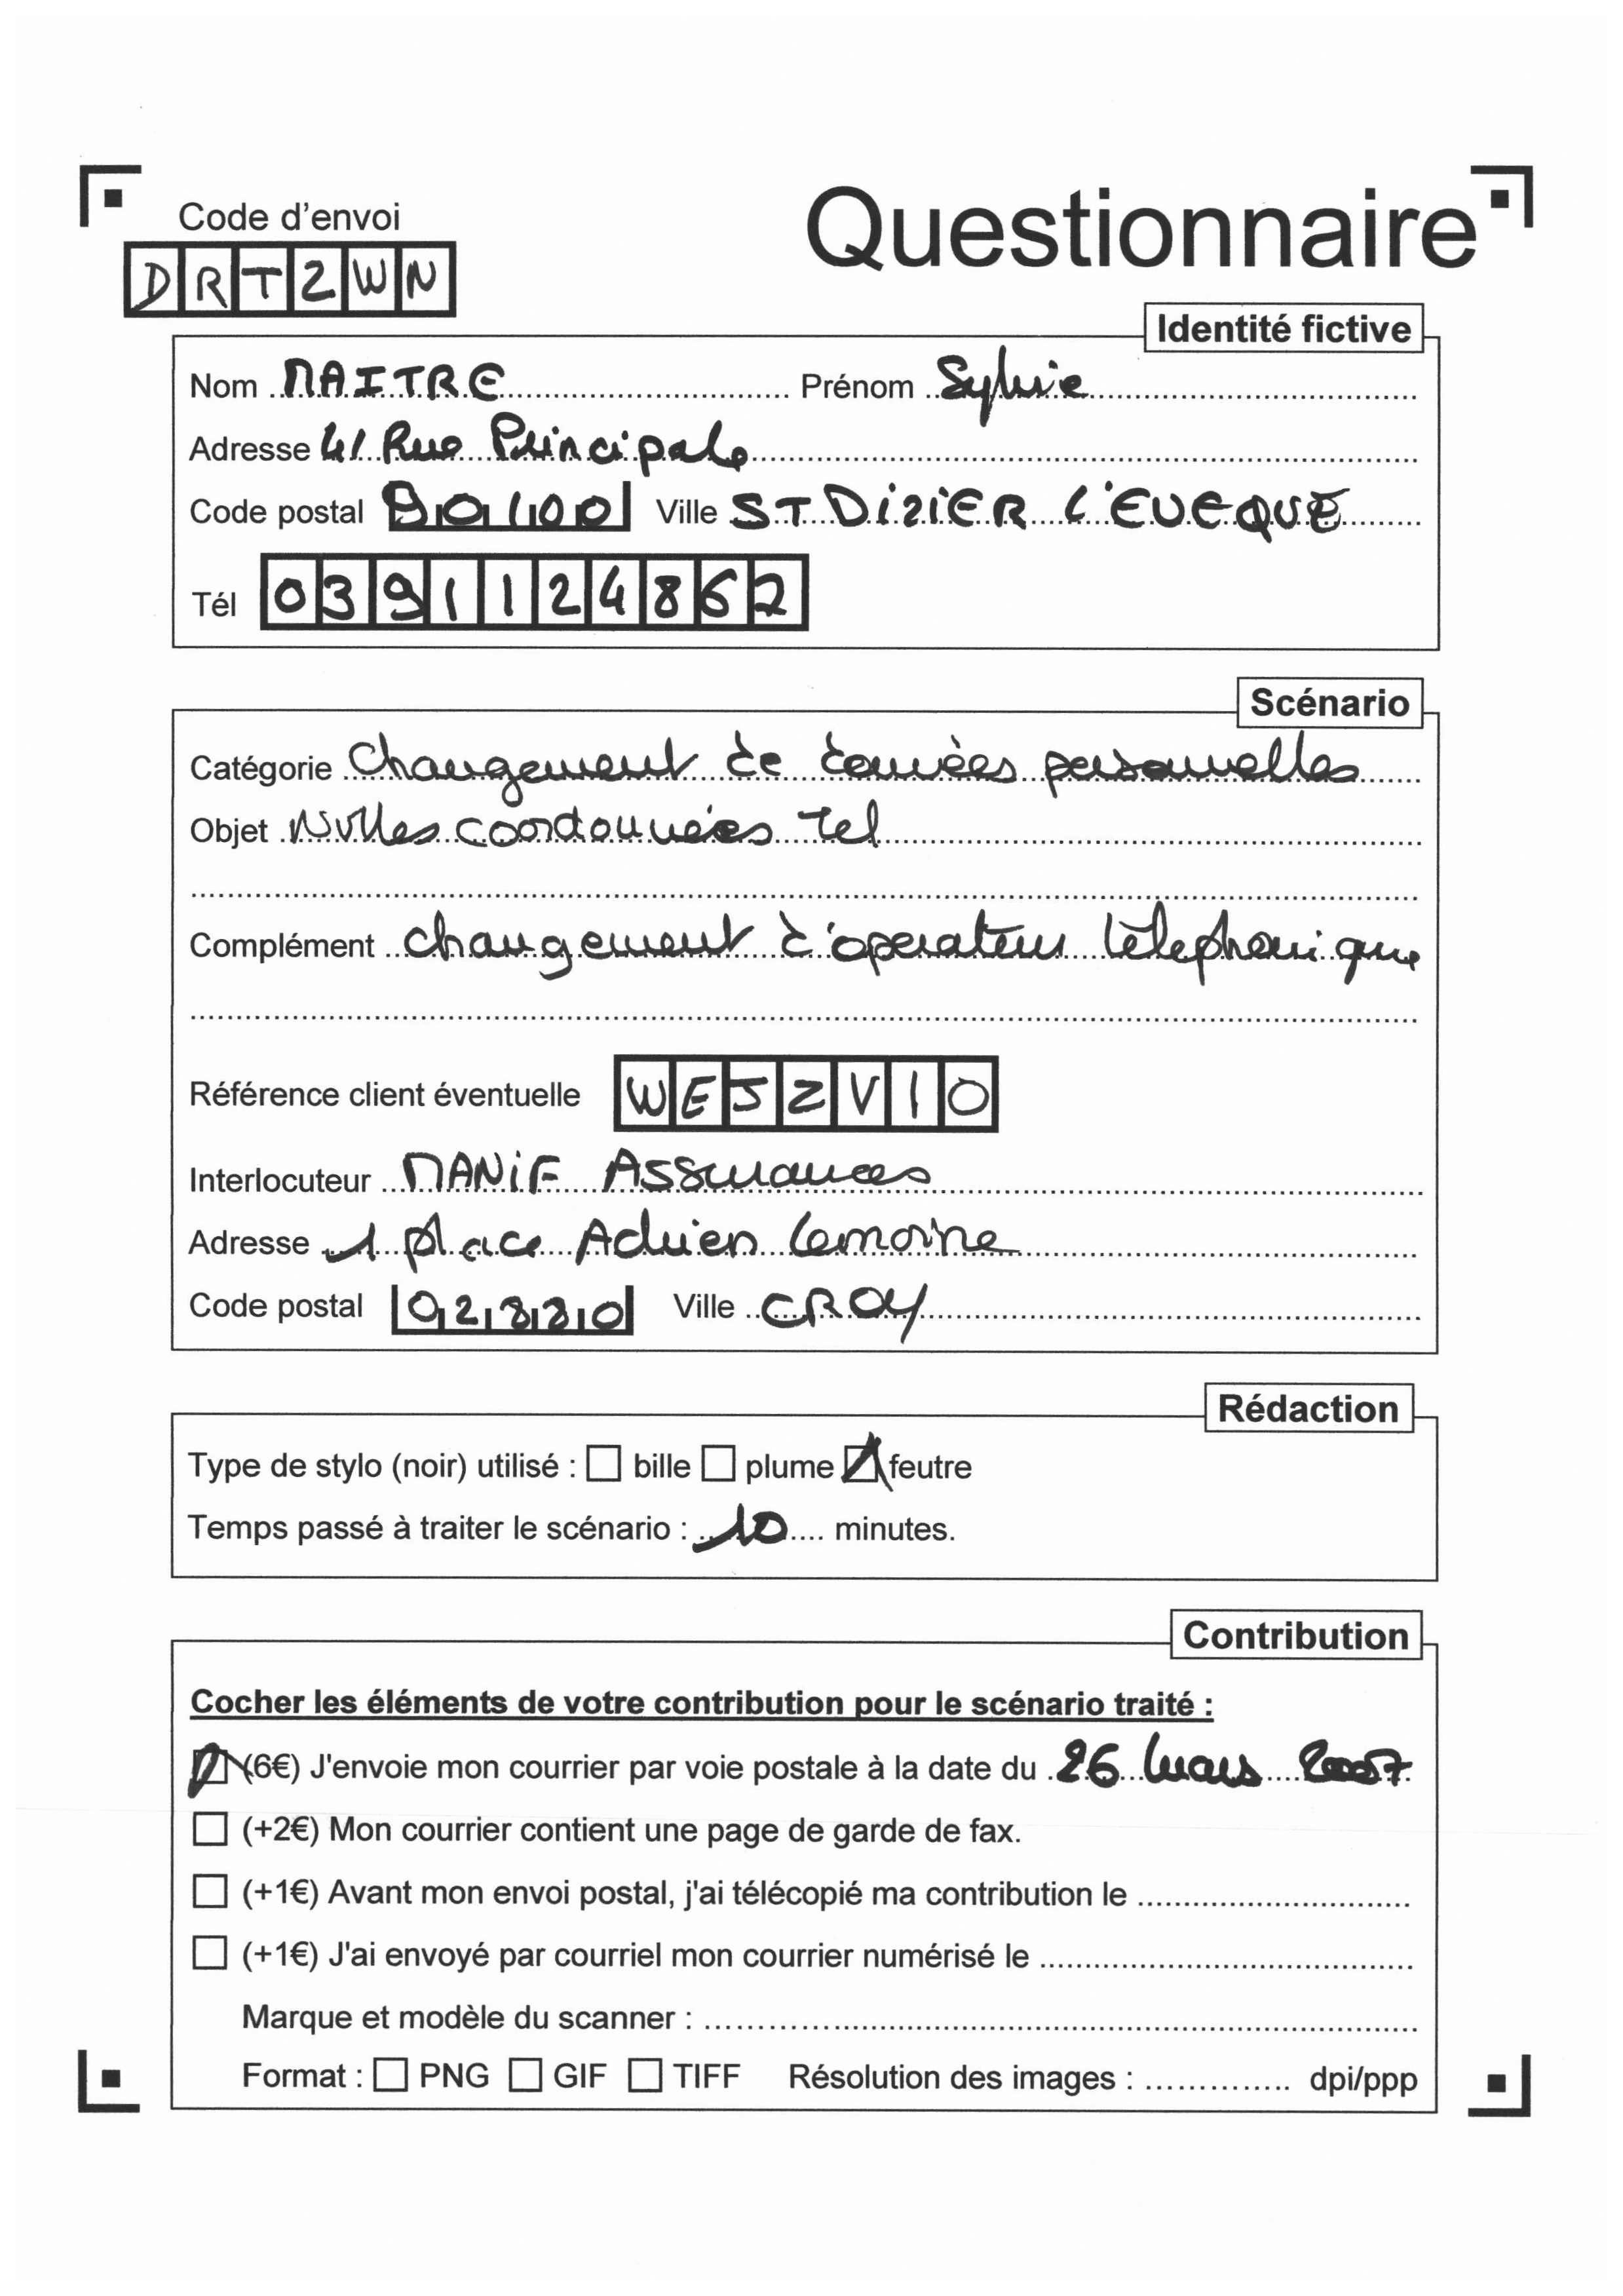 Code d'envoi
Questionnaire
DRTZWN
Identité fictive
Nom MAITRE Prénom Sylvie
Adresse 41 Rue Principale
Code postal 90100 Ville ST DIZIER L'EVEQUE
Tél 0391124862
Scénario
Catégorie Changement de données personnelles
Objet Nvlles coordonnées tel
Complément changement d'operateur télephonique
Référence client éventuelle WESZV10
Interlocuteur MANiF Assurances
Adresse 1 place Adrien Lemoine
Code postal Ville CROY
Rédaction
Type de stylo (noir) utilisé : bille plume feutre
Temps passé à traiter le scénario : 10 minutes.
Contribution
Cocher les éléments de votre contribution pour le scénario traité :
(6€) J'envoie mon courrier par voie postale à la date du 26 mars 2007
(+2€) Mon courrier contient une page de garde de fax.
(+1€) Avant mon envoi postal, j'ai télécopié ma contribution le
(+1€) J'ai envoyé par courriel mon courrier numérisé le
Marque et modèle du scanner :
Format : PNG GIF TIFF Résolution des images : dpi/ppp